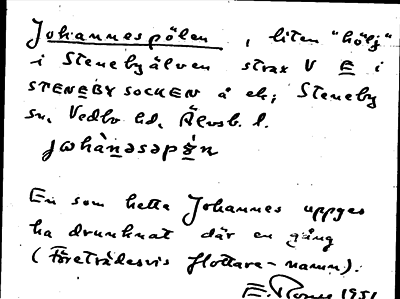 Johannespölen, liten "hölj"
i Stenebyälven strax V E i
STENEBY SOCKEN å ek; Steneby
sn, Vedbo hd, Älvsb. l.
En som hette Johannes uppges
ha drunknat där en gång
(Företrädesvis flottare-namn).
1951